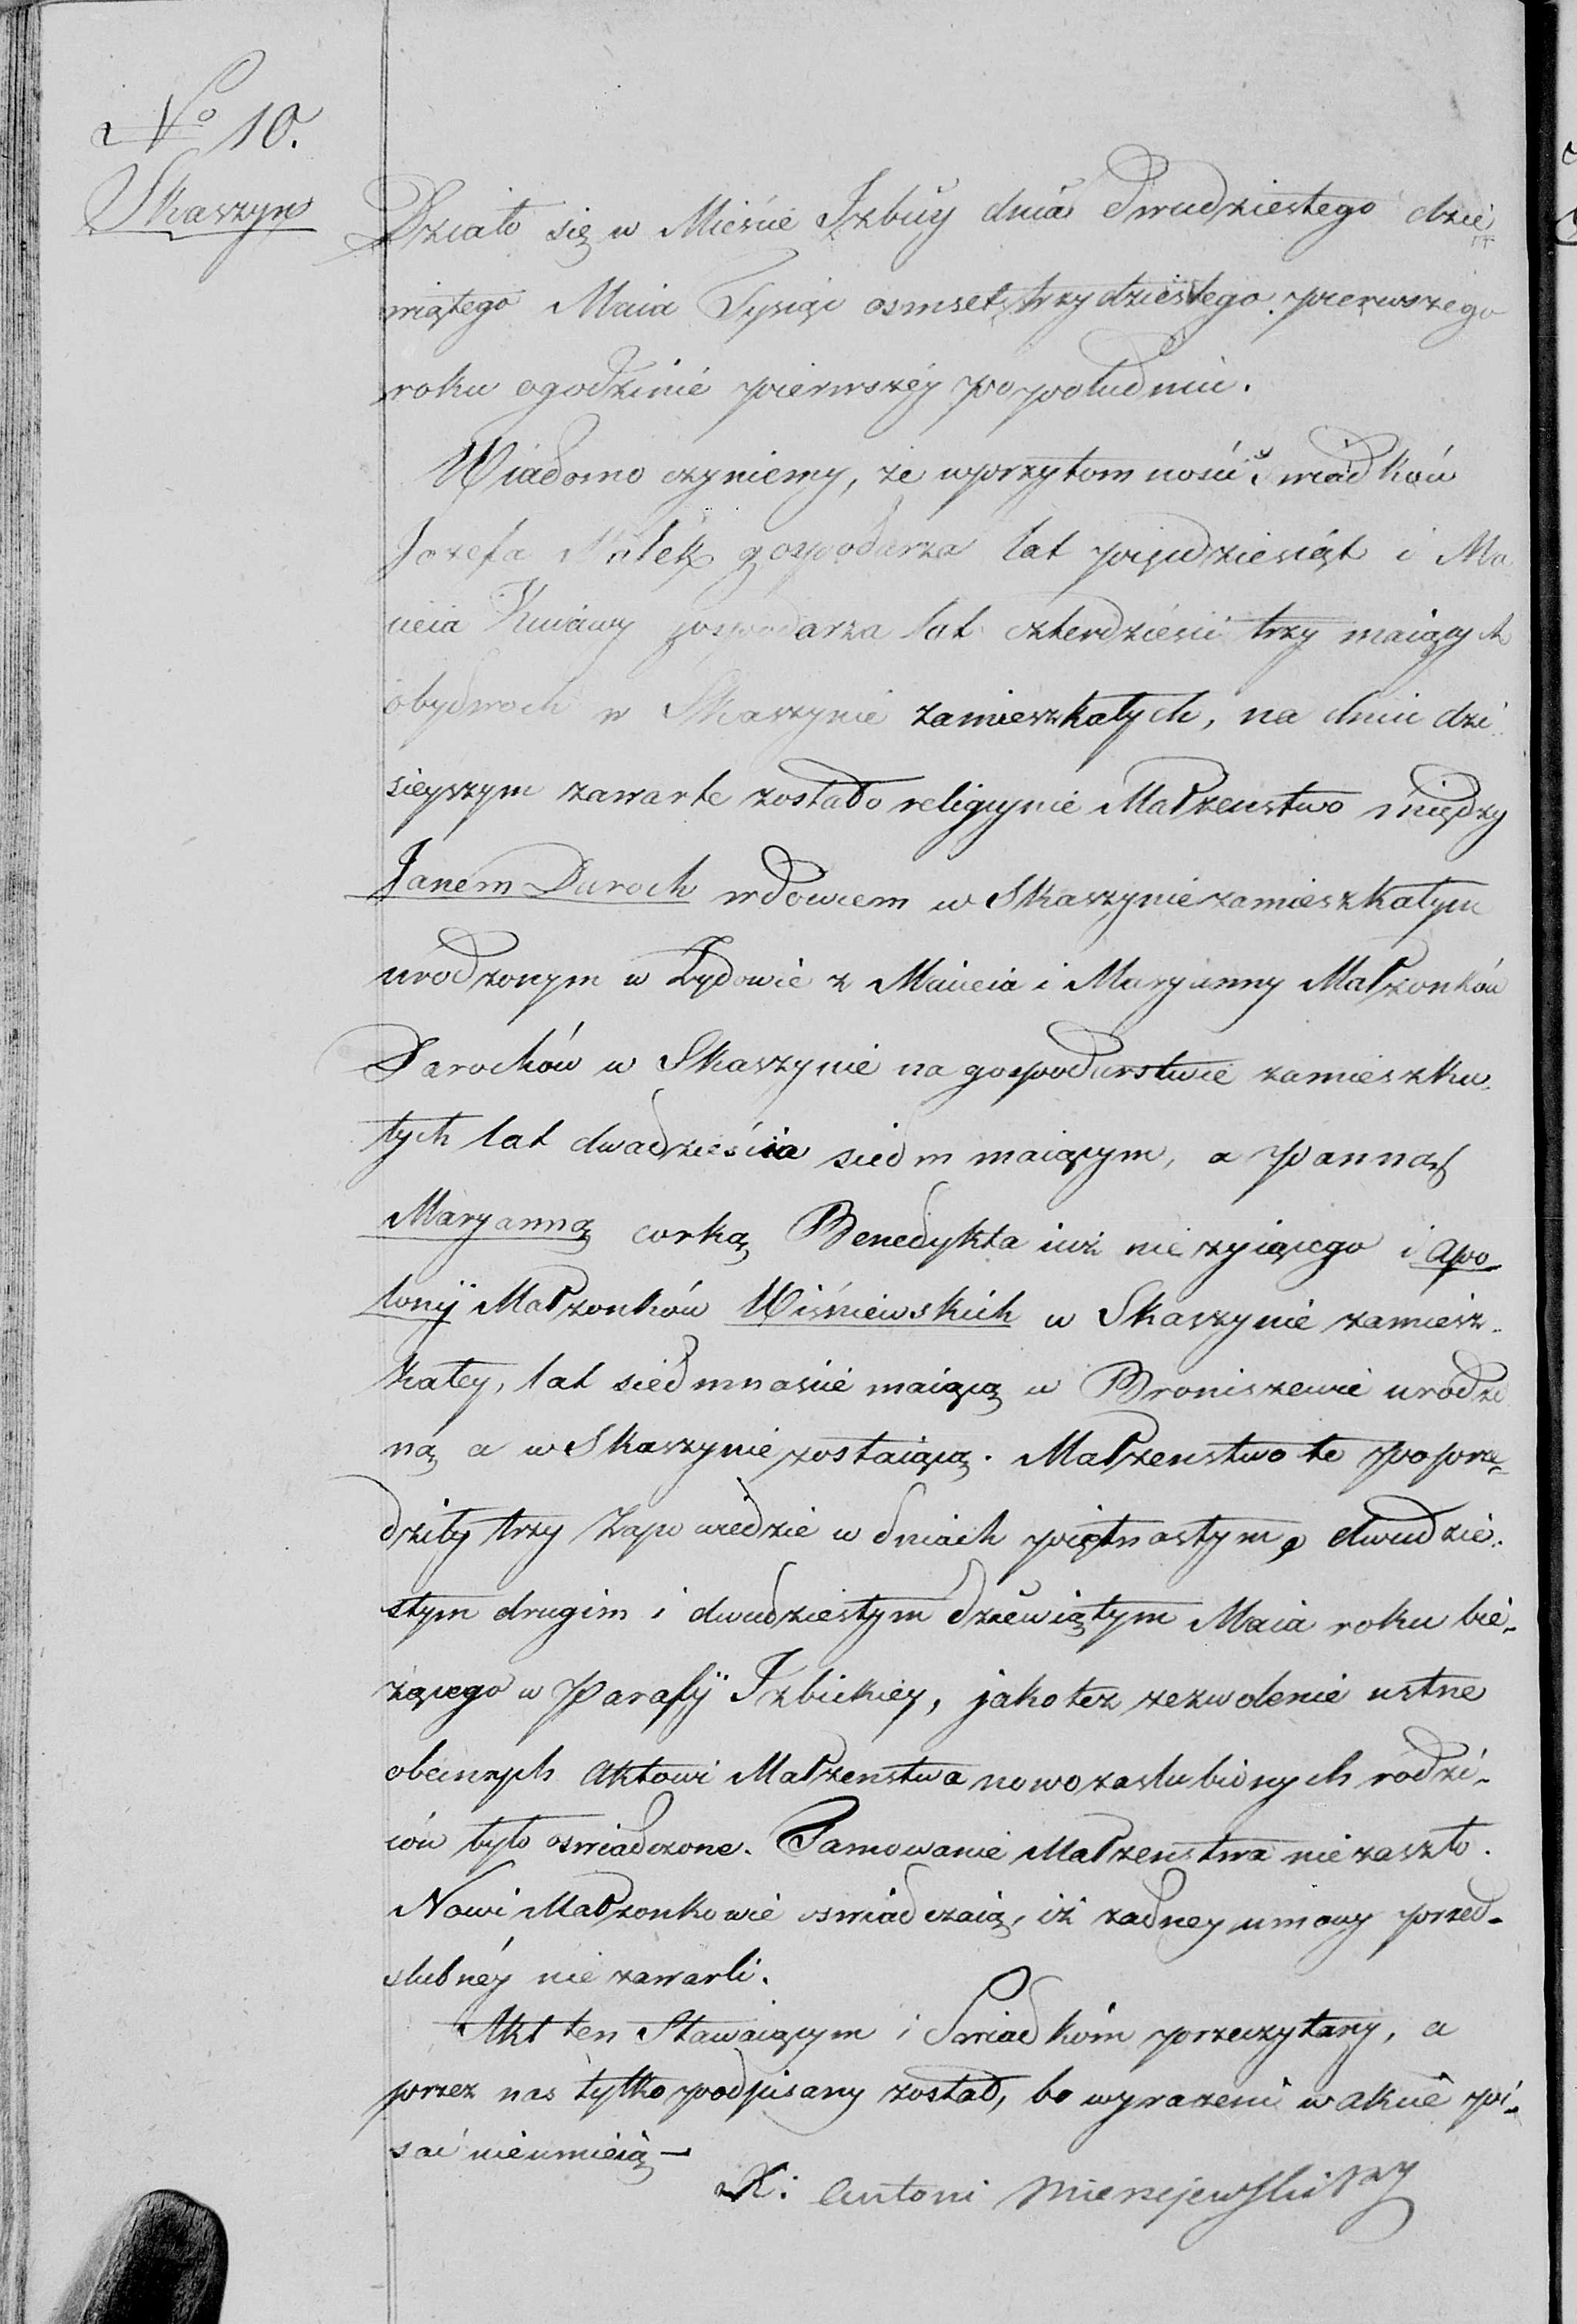 No 10.
Skaszyn
Działo się w Mieście Izbicy dnia dwudziestego dzie
wiątego Maia Tysiąc osmset trzydziestego pierwszego
roku ogodzinie pierwszéy popołudniu.
Wiadomo czyniemy, że wprzytomności Swiadków
Jozefa gospodarza lat pięćdziesiąt i Ma
cieia Kuiawy gospodarza lat czterdzieści trzy maiących
obydwoch w Skaszynie zamieszkałych, na dniu dzi
sieyszym zawarte zostało religiynie Małżeństwo między
Janem Duroch wdowcem w Skaszynie zamieszkałym
urodzonym w Zydowie z Macieia i Maryanny Małżonków
Darochów w Skaszynie na gospodarstwie zamieszka-
łych lat dwadzieścia siedm maiącym, a panną
Maryanną corką Benedykta iuż nie zyiącego i Apo-
lonÿ Małżonków Wiśniewskich w Skaszynie zamiesz-
kałey, lat siedmnaście maiącą w Broniszewie urodzo
ną a w Skaszynie zostaiącą. Małżenstwo te poprze-
dziły trzy Zapowiedzie w dniach piętnastym, dwudzie-
stym drugim i dwudziestym dziewiątym Maia roku bie-
żącego w Parafÿ Izbickiey, jakotez zezwolenie ustne
obecnych Aktowi Małżenstwa nowozaslubionych rodzi-
ców było oswiadczone. Tamowanie Małżenstwa nie zaszło.
Nowi Małżonkowie oswiadczaią, iż żadney umowy przed-
slubnéy nie zawarli.
Akt ten Stawaiącym i Swiadkóm przeczytany, a
przez nas tylko podpisany został, bo wyrazeni w akcie pi-
sać nieumieią—
X: Antoni Mierzejewski